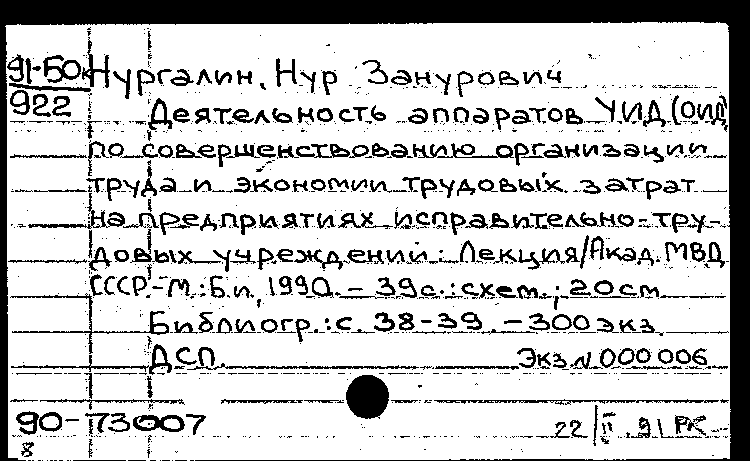 91-БОк Нургалин, Нур Занурович
922
Деятельность аппаратов УИД (ОИД)
по совершенствованию организации
труда и экономии трудовых затрат
на предприятиях исправительно-тру-
довых учреждений: Лекция/Акад. МВД
СССР.-М.: Б.и., 1990. - 39 с.: схем.; 20 cm
Библиогр.: с. 38-39. - 300 экз.
ДСП. Экз. N 000 006
90-73007
22/II.91 РК
8